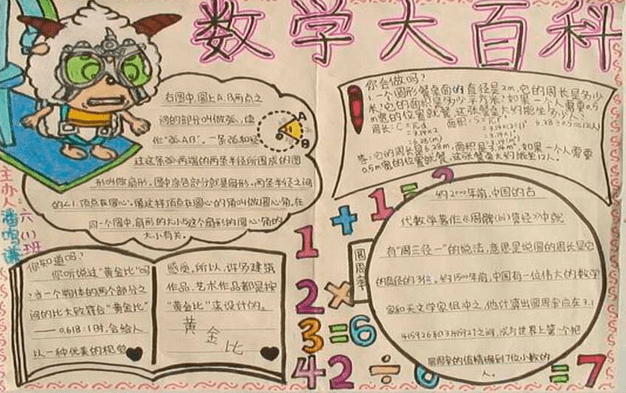 数学大百科
右图中,圆上A.B两点之
间的部分叫做弧,读
作"弧AB",一条弧和经
过这条弧两端的两条半径所围成的图
形叫做扇形。图中涂色部分就是扇形。两条半径之间
的∠1,顶点在圆心。像这样顶点在圆心的角叫做圆心角。在
同一个圆中,扇形的大小与这个扇形的圆心角的
大小有关。
A
B
主办人:潘
六(1)班
你会做吗?
1.一个圆形餐桌面的直径是2m,它的周长是多少
米?它的面积是多少平方米?如果一个人需要0.5
m宽的位置就餐,这张餐桌大约能坐多少人?
周长:C=πd
面积:S=πr²
答:它的周长是6.28m,面积是3.14m²,如果一个人需要
0.5m宽的位置就餐,这张餐桌大约能坐12人。
你知道吗?
你听说过"黄金比"吗
?当一个物体的两个部分之
间的比大致符合"黄金比"
——0.618:1时,会给人
以一种优美的视觉
感受。所以,许多建筑
作品、艺术作品都是按
"黄金比"来设计的。
黄金比
1+1=2
2×
3=6
42÷6=7
圆周率
约2000年前,中国的古
代数学著作《周髀算经》中就
有"周三径一"的说法,意思是说圆的周长是它
的直径的3倍。约1500年前,中国有一位伟大的数学
家和天文学家祖冲之。他计算出圆周率应在3.1
415926和3.1415927之间,成为世界上第一个把
圆周率的值精确到7位小数的
人。